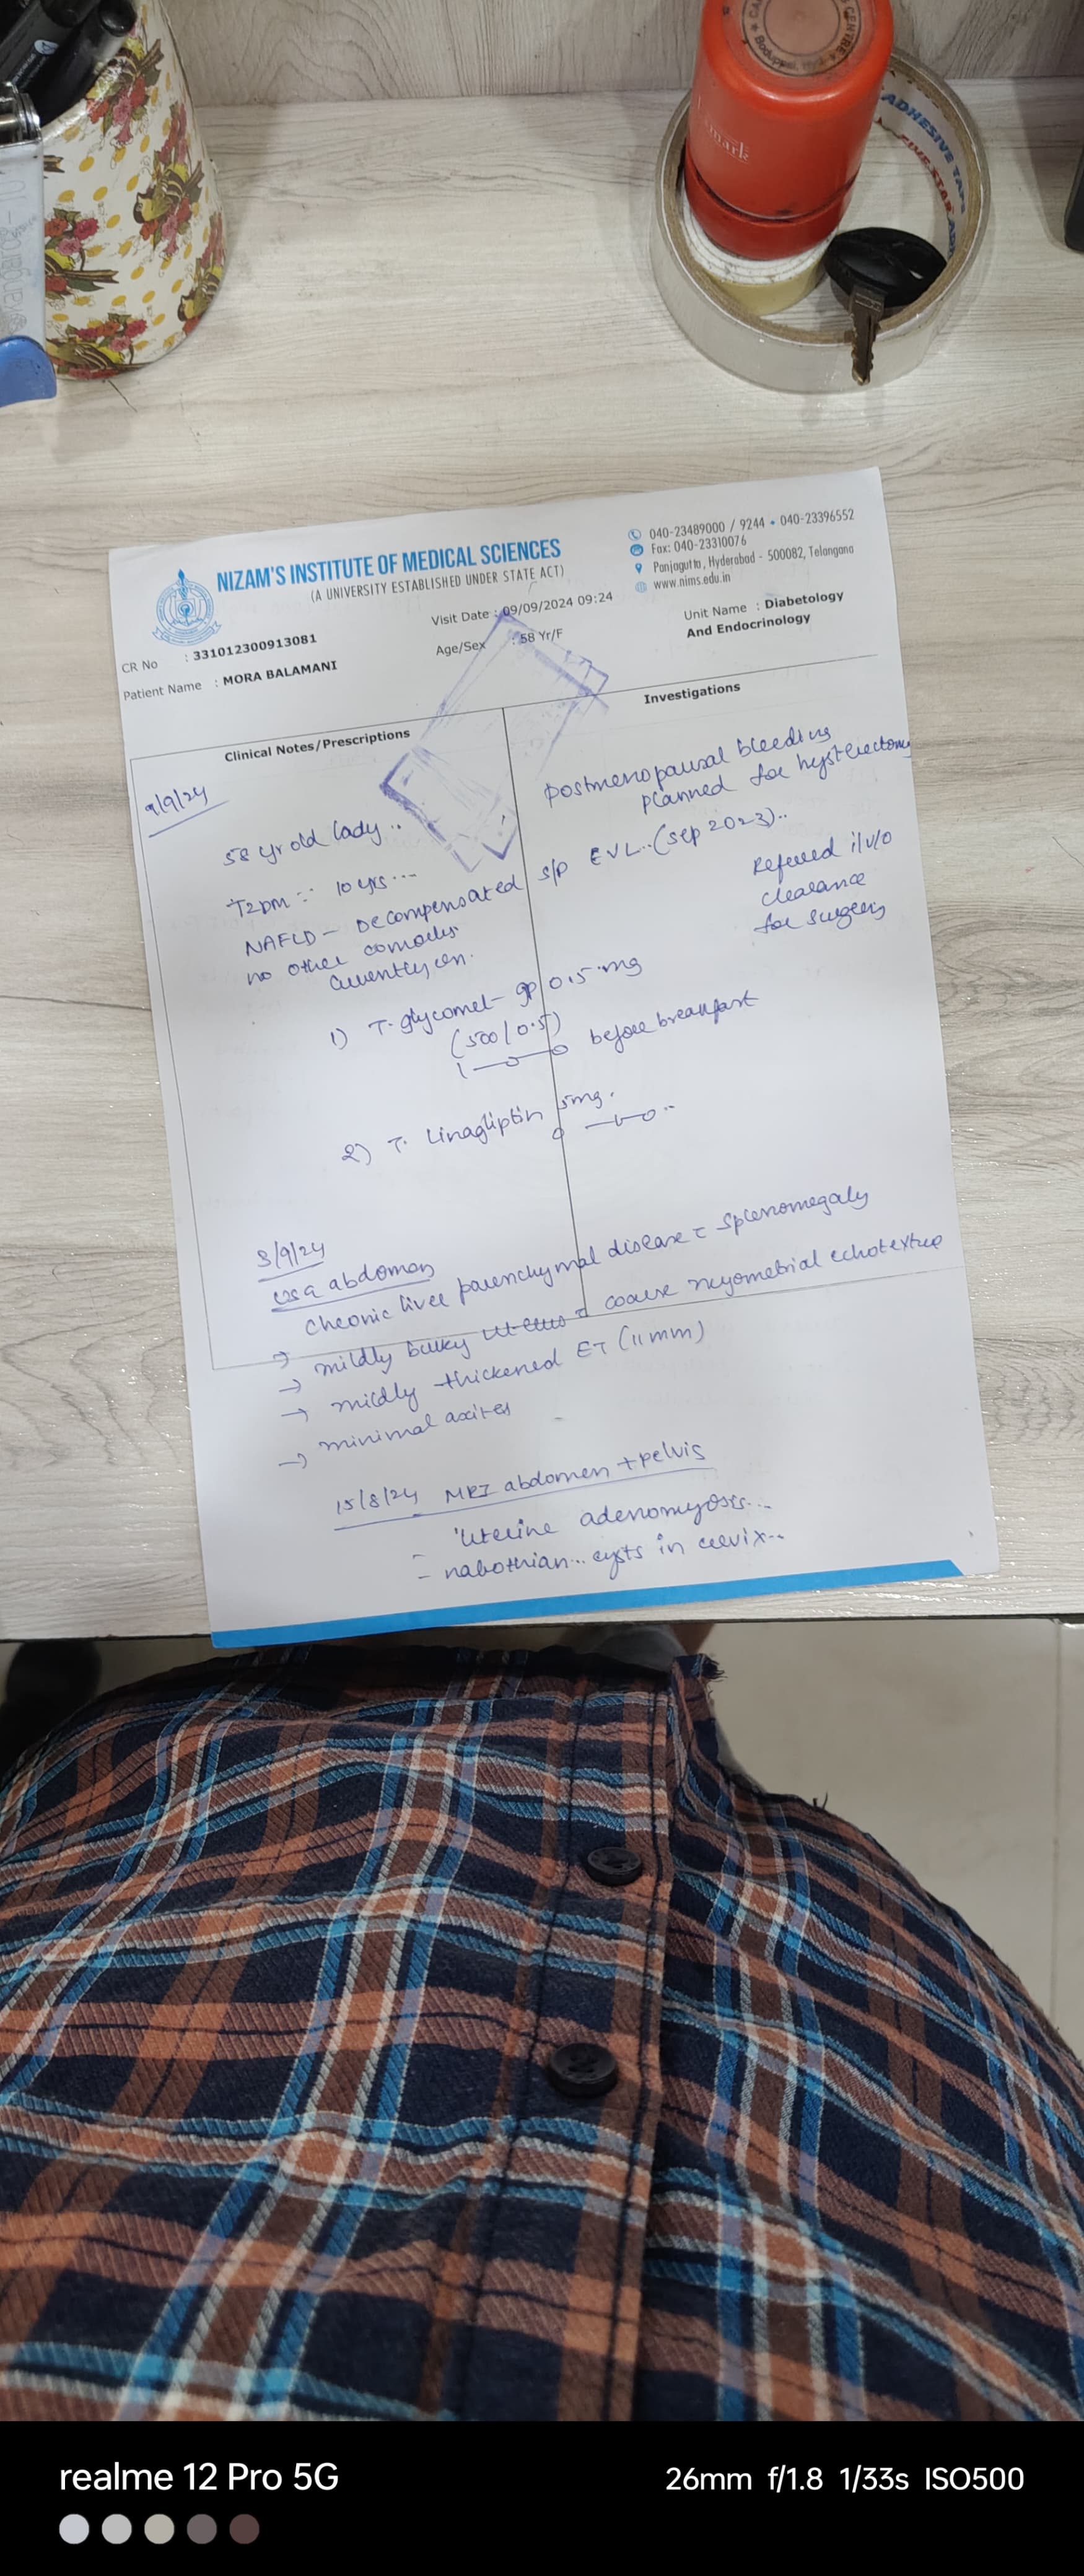 NIZAM'S INSTITUTE OF MEDICAL SCIENCES
(A UNIVERSITY ESTABLISHED UNDER STATE ACT)
040-23489000 / 9244 • 040-23396552
Fax: 040-23310076
Panjagutta, Hyderabad - 500082, Telangana
www.nims.edu.in
CR No : 331012300913081
Visit Date : 09/09/2024 09:24
Unit Name : Diabetology And Endocrinology
Patient Name : MORA BALAMANI
Age/Sex : 58 Yr/F
Clinical Notes/Prescriptions
Investigations
9/9/24
58 yr old lady..
Postmenopausal bleeding
planned for hysterectomy
T2DM :: 10 yrs...
NAFLD - Decompensated S/P EVL..(Sep 2023)..
no other
currently on.
Referred i/v/o
clearance
for surgery
1) T. glycomet- gp 0.5 mg
(500/0.5)
1—0—0 before breakfast
2) T. Linagliptin 5mg.
0—1—0..
3/9/24
USG abdomen
Chronic liver parenchymal disease c̄ splenomegaly
→ mildly bulky uterus c̄ coarse myometrial echotexture
→ mildly thickened ET (11mm)
→ minimal axites
15/8/24 MRI abdomen + pelvis
- Uterine adenomyosis...
- nabothian... cysts in cervix...
ADHESIVE TAPE
FIVE STAR
realme 12 Pro 5G
26mm f/1.8 1/33s ISO500